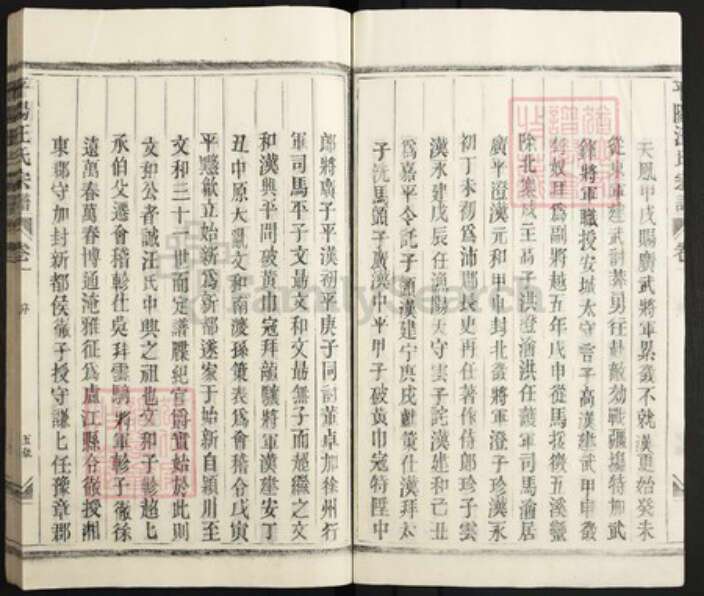 天鳳甲戌賜廣武將軍累薇不就漢更始癸未
從東軍建武討莽男任赴敵効戰疆場特加武
鋒將軍職授安城太守言子高漢建武甲申
匈奴拜爲副將越五年戊申從馬援徵五溪蠻
除北寨 高子洪澄渝洪任護軍司馬渝居
廣平澄漢元和甲申封北蠻將軍澄子珍漢永
初丁未初爲沛郡長史再任著作侍郎珍子雲
漢永建戊辰任漁陽太守雲子詫漢建和己丑
爲嘉平令託子顗漢建宁庚戌獻策仕漢拜太
子洗馬顗子廣漢中平甲子破黃巾寇特陞中
郎將廣子平漢初平庚子同討董卓加徐州行
軍司馬平子文勗文和文勗無子而繼之文
和漢興平間破黃巾寇拜龍驤將軍漢建安丁
丑中原大亂文和南渡孫策表爲會稽令戊寅
平黟歙立始新爲新都遂家于始新自潁川至
文和三十一世而定譜牒紀官爵實始於此則
文和公者誠汪氏中興之祖也文和子軫超七
承伯父遷會稽軫仕吳拜雲驃將軍軫子徹徐
遠萬春萬春博通淹雅征爲廬江縣令徹授湘
東郡守加封新都侯徹子授守謙七任豫章郡
平陽汪氏宗譜
卷一
平陽汪氏宗譜
卷一
FamilySearch